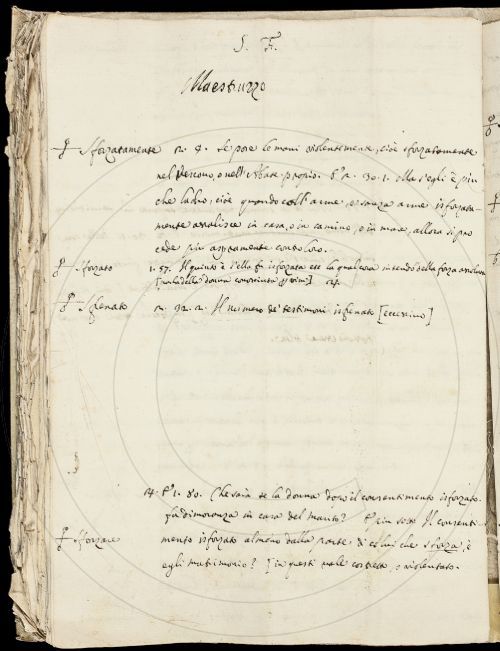 S. F.
Maestruzzo
Sforzatamente 2. 8. Se pose le mani violentemente, cioè sforzatamente
nel Vescovo, o nell'Abate proprio. E 2. 30. 1. Ma s'egli è più
che ladro; cioè quando coll'arme, o sanza arme isforzata-
mente assalisce in casa, o in camino, o in mare, allora si pro
cede più aspramente contro loro.
Sforzato 1. 57. Il quinto è s'ella fu isforzata etc. la qual cosa intendo della forza assoluta
[parla della donna conosciuta
Sfrenato 2. 32. 2. Il numero de' testimoni isfrenato [eccessivo]
1. 80. Che sarà se la donna dopo il consentimento isforzato
fa dimoranza in casa del marito? E più sotto Il consenti-
Sforzare mento isforzato almeno dalla parte di colui che sforza, è
egli matrimonio? [in questi vale costretto, o violentato.